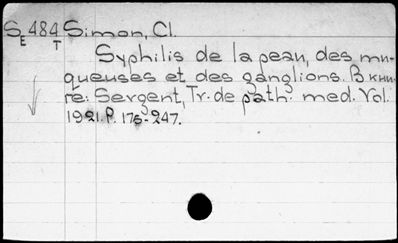 SE 484T Simon, Cl.
Syphilis de la peau, des mu-
queuses et des ganglions. В кни-
ге: Sergent, Tr. de path. med. Vol.
1921. P. 175-247.